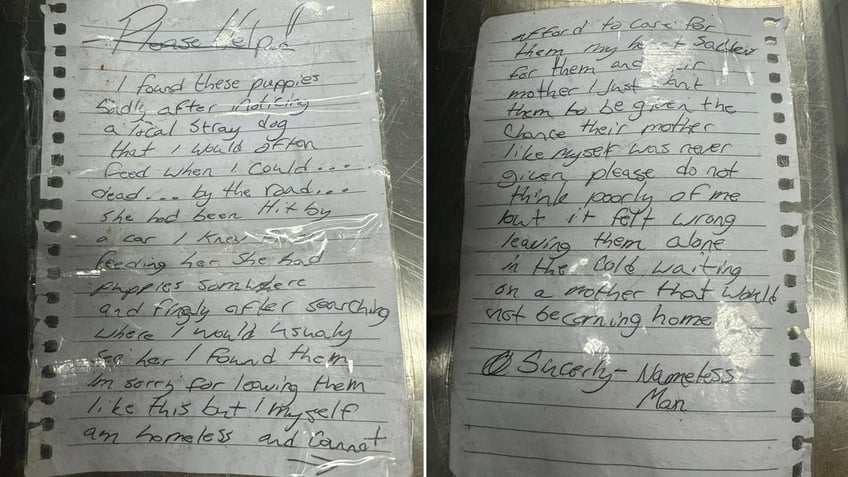 Please Help!!
I found these puppies
Sadly after noticing
a local Stray dog
that I would often
feed when I could...
dead... by the road...
she had been Hit by
a car I knew
feeding her she had
puppies somwhere
and finaly after searching
where I would usualy
see her I found them
Im sorry for leaving them
like this but I myself
am homeless and Cannot
afford to care for
them my saddens
for them and
mother I Just
them to be given the
chance their mother
like myself was never
given please do not
think poorly of me
but it felt wrong
leaving them alone
in the Cold waiting
on a mother that would
not becoming home
Sincerly - Nameless
Man